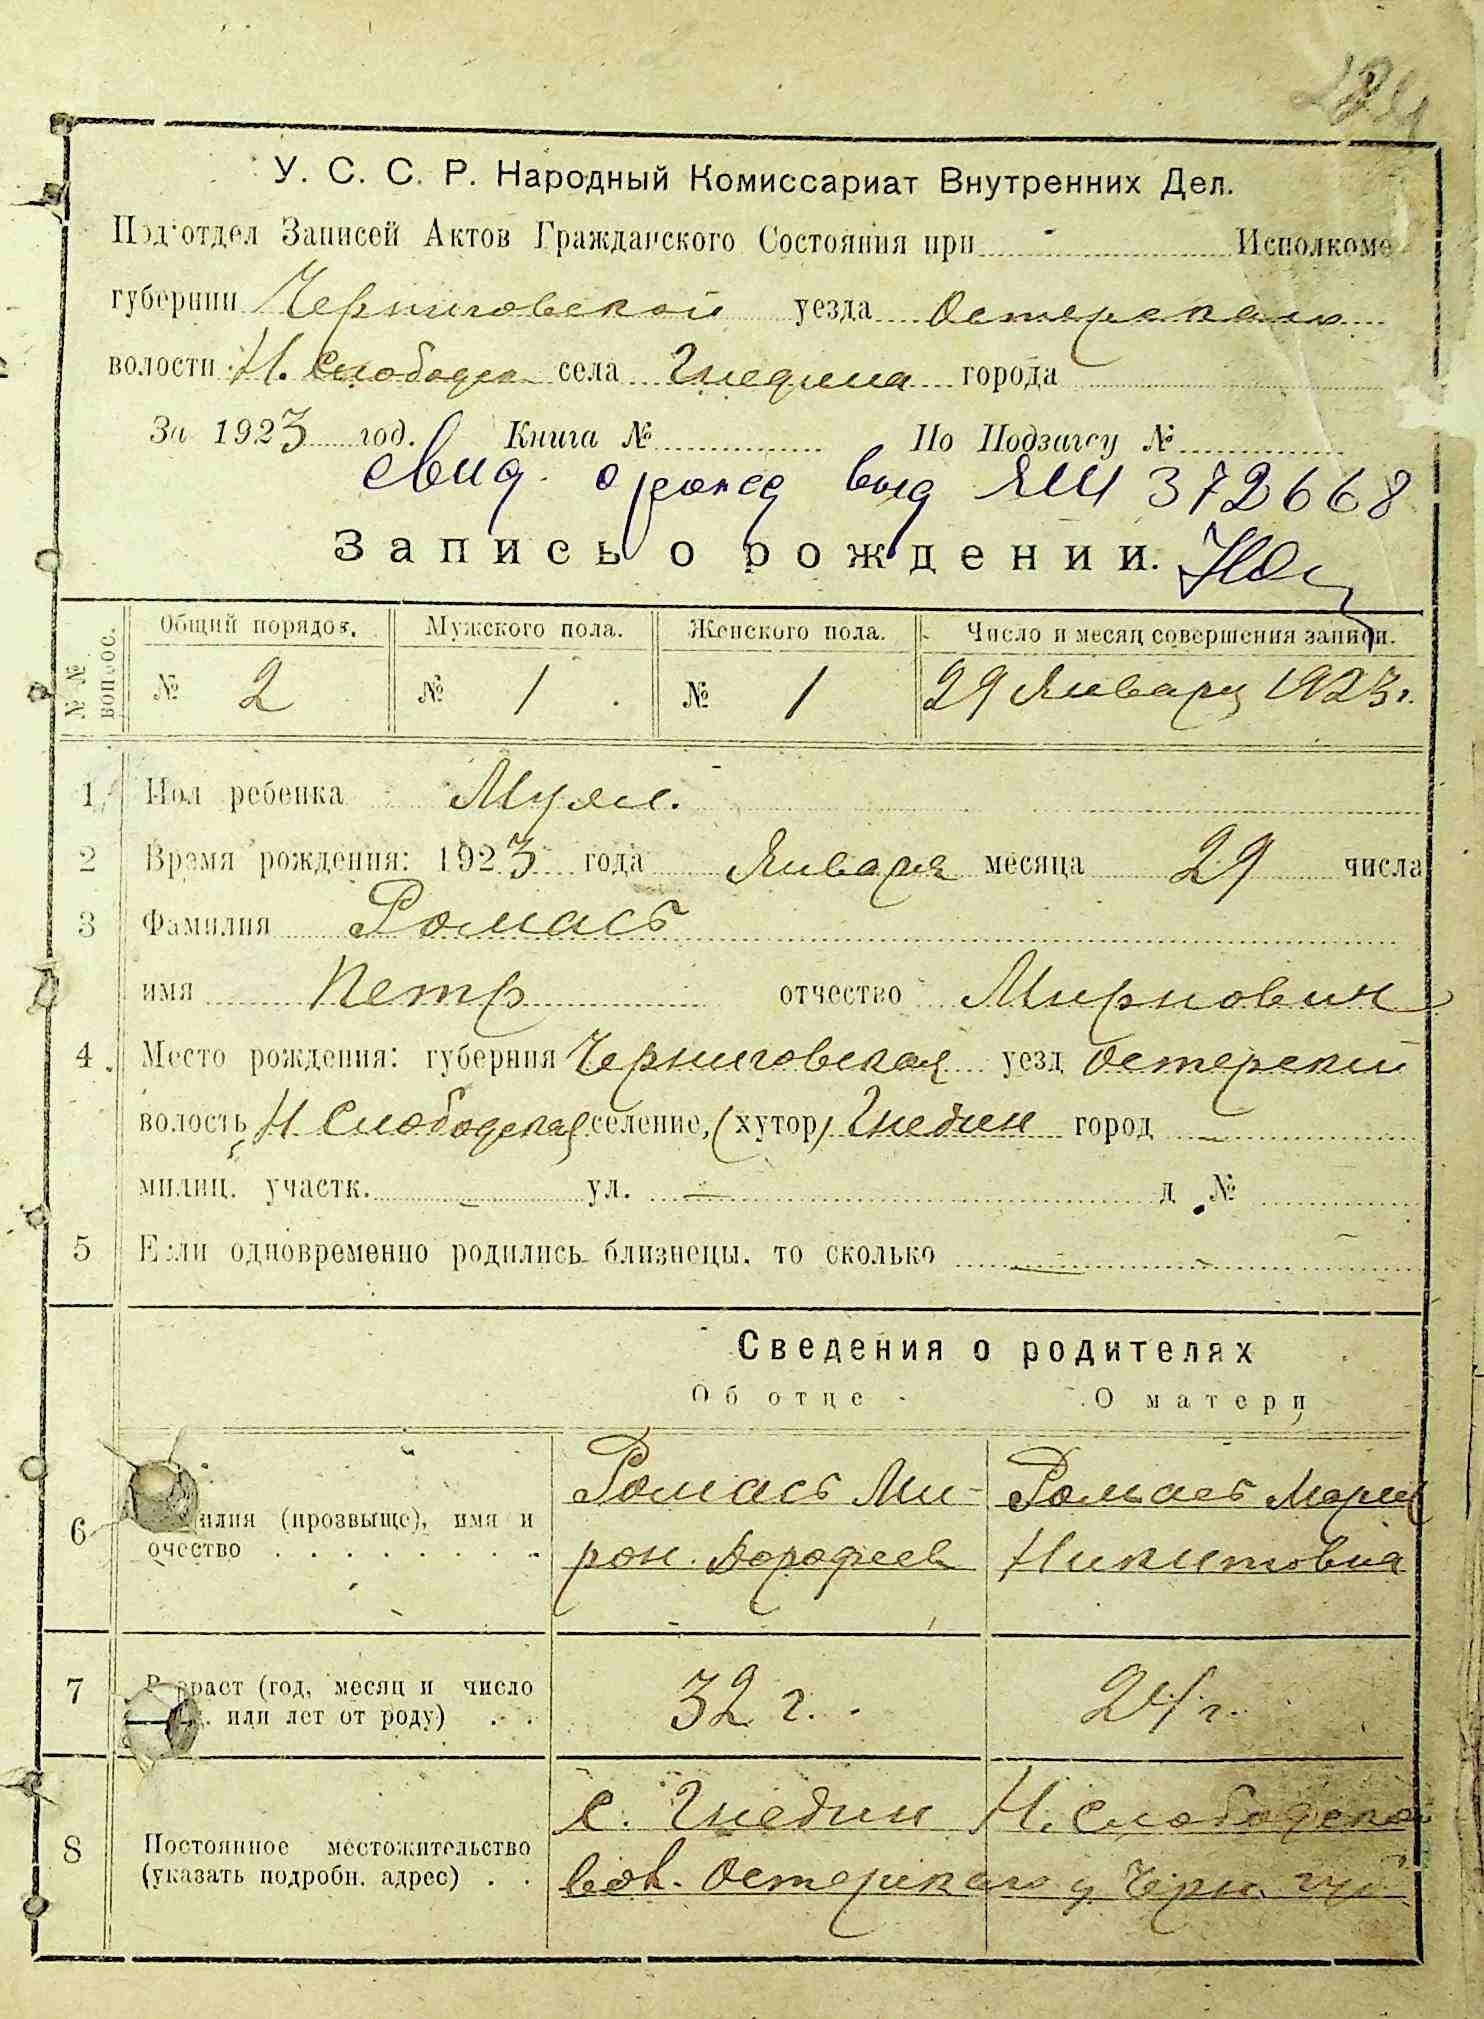 У. С. С. Р. Народный Комиссариат Внутренних Дел.
Под'отдел Записей Актов Гражданского Состояния при Исполкоме
губернии Черниговской уезда Остерского
волости Н. Слободск села Гнедина города
За 1923 год. Книга № По Подзагсу №
свид. о рожд выд ЯШ 372668
Запись о рождении.
№№ вопрос. Общий порядок. Мужского пола. Женского пола. Число и месяц совершения записи.
№ 2 № 1 № 1 29 Января 1923 г.
1 Пол ребенка Муж.
2 Время рождения: 1923 года Января месяца 29 числа
3 Фамилия Ромась
имя Петр отчество Мирнович
4 Место рождения: губерния Черниговская уезд Остерский
волость Н Слободская селение, (хутор) Гнедин город —
милиц. участк. — ул. — д. №
5 Если одновременно родились близнецы, то сколько —
Сведения о родителях
Об отце О матери
6 Фамилия (прозвыще), имя и Ромась Ми- Ромась Мария
очество рон. Дорофеев Никитовна
7 Возраст (год, месяц и число 32 г. 24 г.
или лет от роду)
8 Постоянное местожительство с. Гнедин Н. Слободской
(указать подробн. адрес) вол. Остерского у. Черн. губ